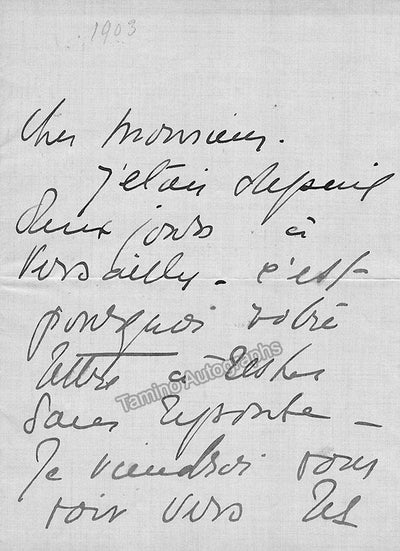 1903
Cher Monsieur.
j'étais depuis
deux jours à
Versailles - c'est
pourquoi votre
lettre a restée
Tamino Autographs
sans réponse -
Je viendrai vous
voir vers les